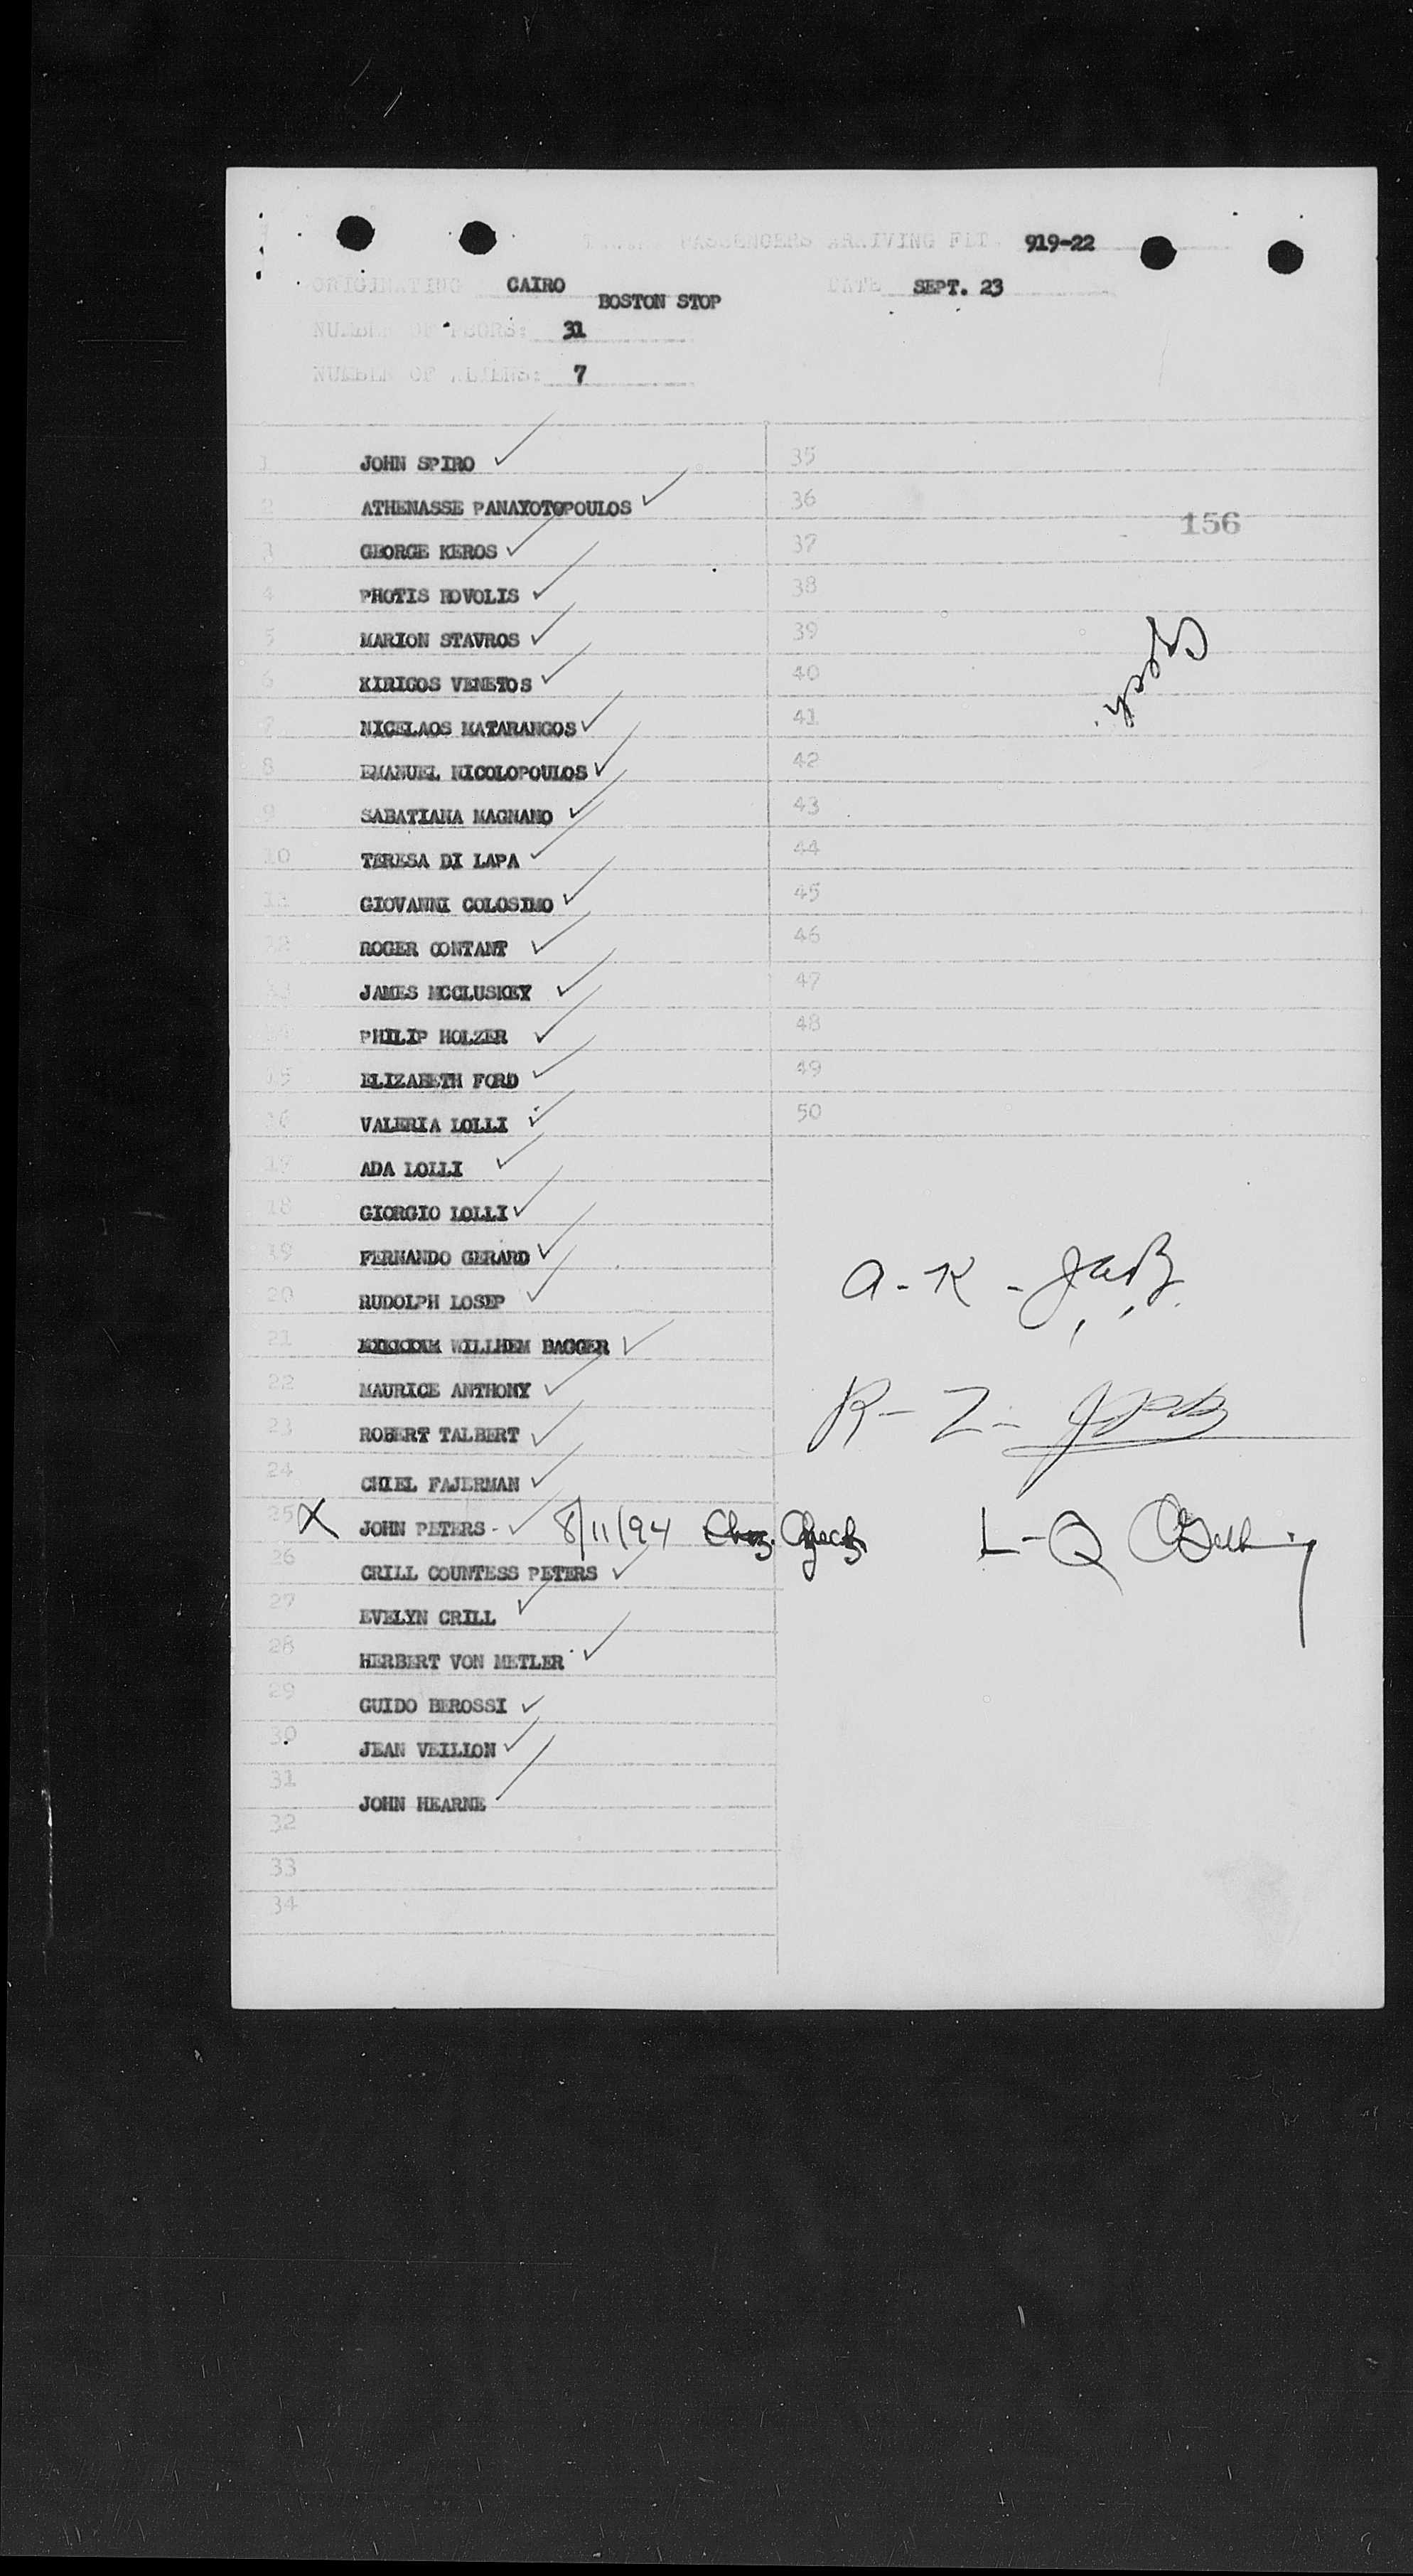 PASSENGERS ARRIVING FLT. 919-22
ORIGINATING CAIRO DATE SEPT. 23
BOSTON STOP
NUMBER OF 31
NUMBER OF ALIENS: 7
1 JOHN SPIRO 35
2 ATHENASSE PANAYOTOPOULOS 36
156
3 GEORGE KEROS 37
4 PHOTIS HOVOLIS 38
5 MARION STAVROS 39
6 KIRIGOS VENETOS 40
7 NICELAOS MATARANGOS 41
8 EMANUEL NICOLOPOULOS 42
9 SABATIANA MAGNANO 43
10 TERESA DI LAPA 44
11 GIOVANNI COLOSIMO 45
12 ROGER CONTANT 46
13 JAMES MCCLUSKEY 47
14 PHILIP HOLZER 48
15 ELIZABETH FORD 49
16 VALERIA LOLLI 50
17 ADA LOLLI
18 GIORGIO LOLLI
19 FERNANDO GERARD
20 RUDOLPH LOSEP
21 WILLHEM BAGGER
22 MAURICE ANTHONY
23 ROBERT TALBERT
24 CHIEL FAJERMAN
25 X JOHN PETERS - 8/11/94
26 CRILL COUNTESS PETERS
27 EVELYN CRILL
28 HERBERT VON METLER
29 GUIDO BEROSSI
30 JEAN VEILLON
31 JOHN HEARNE
32
33
34
A - K -
R - Z -
L - Q